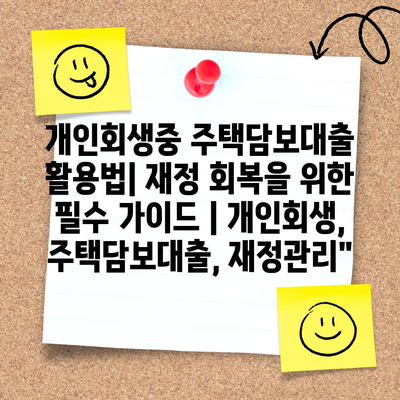 개인회생중 주택담보대출
활용법| 재정 회복을 위한
필수 가이드 | 개인회생,
주택담보대출, 재정관리"